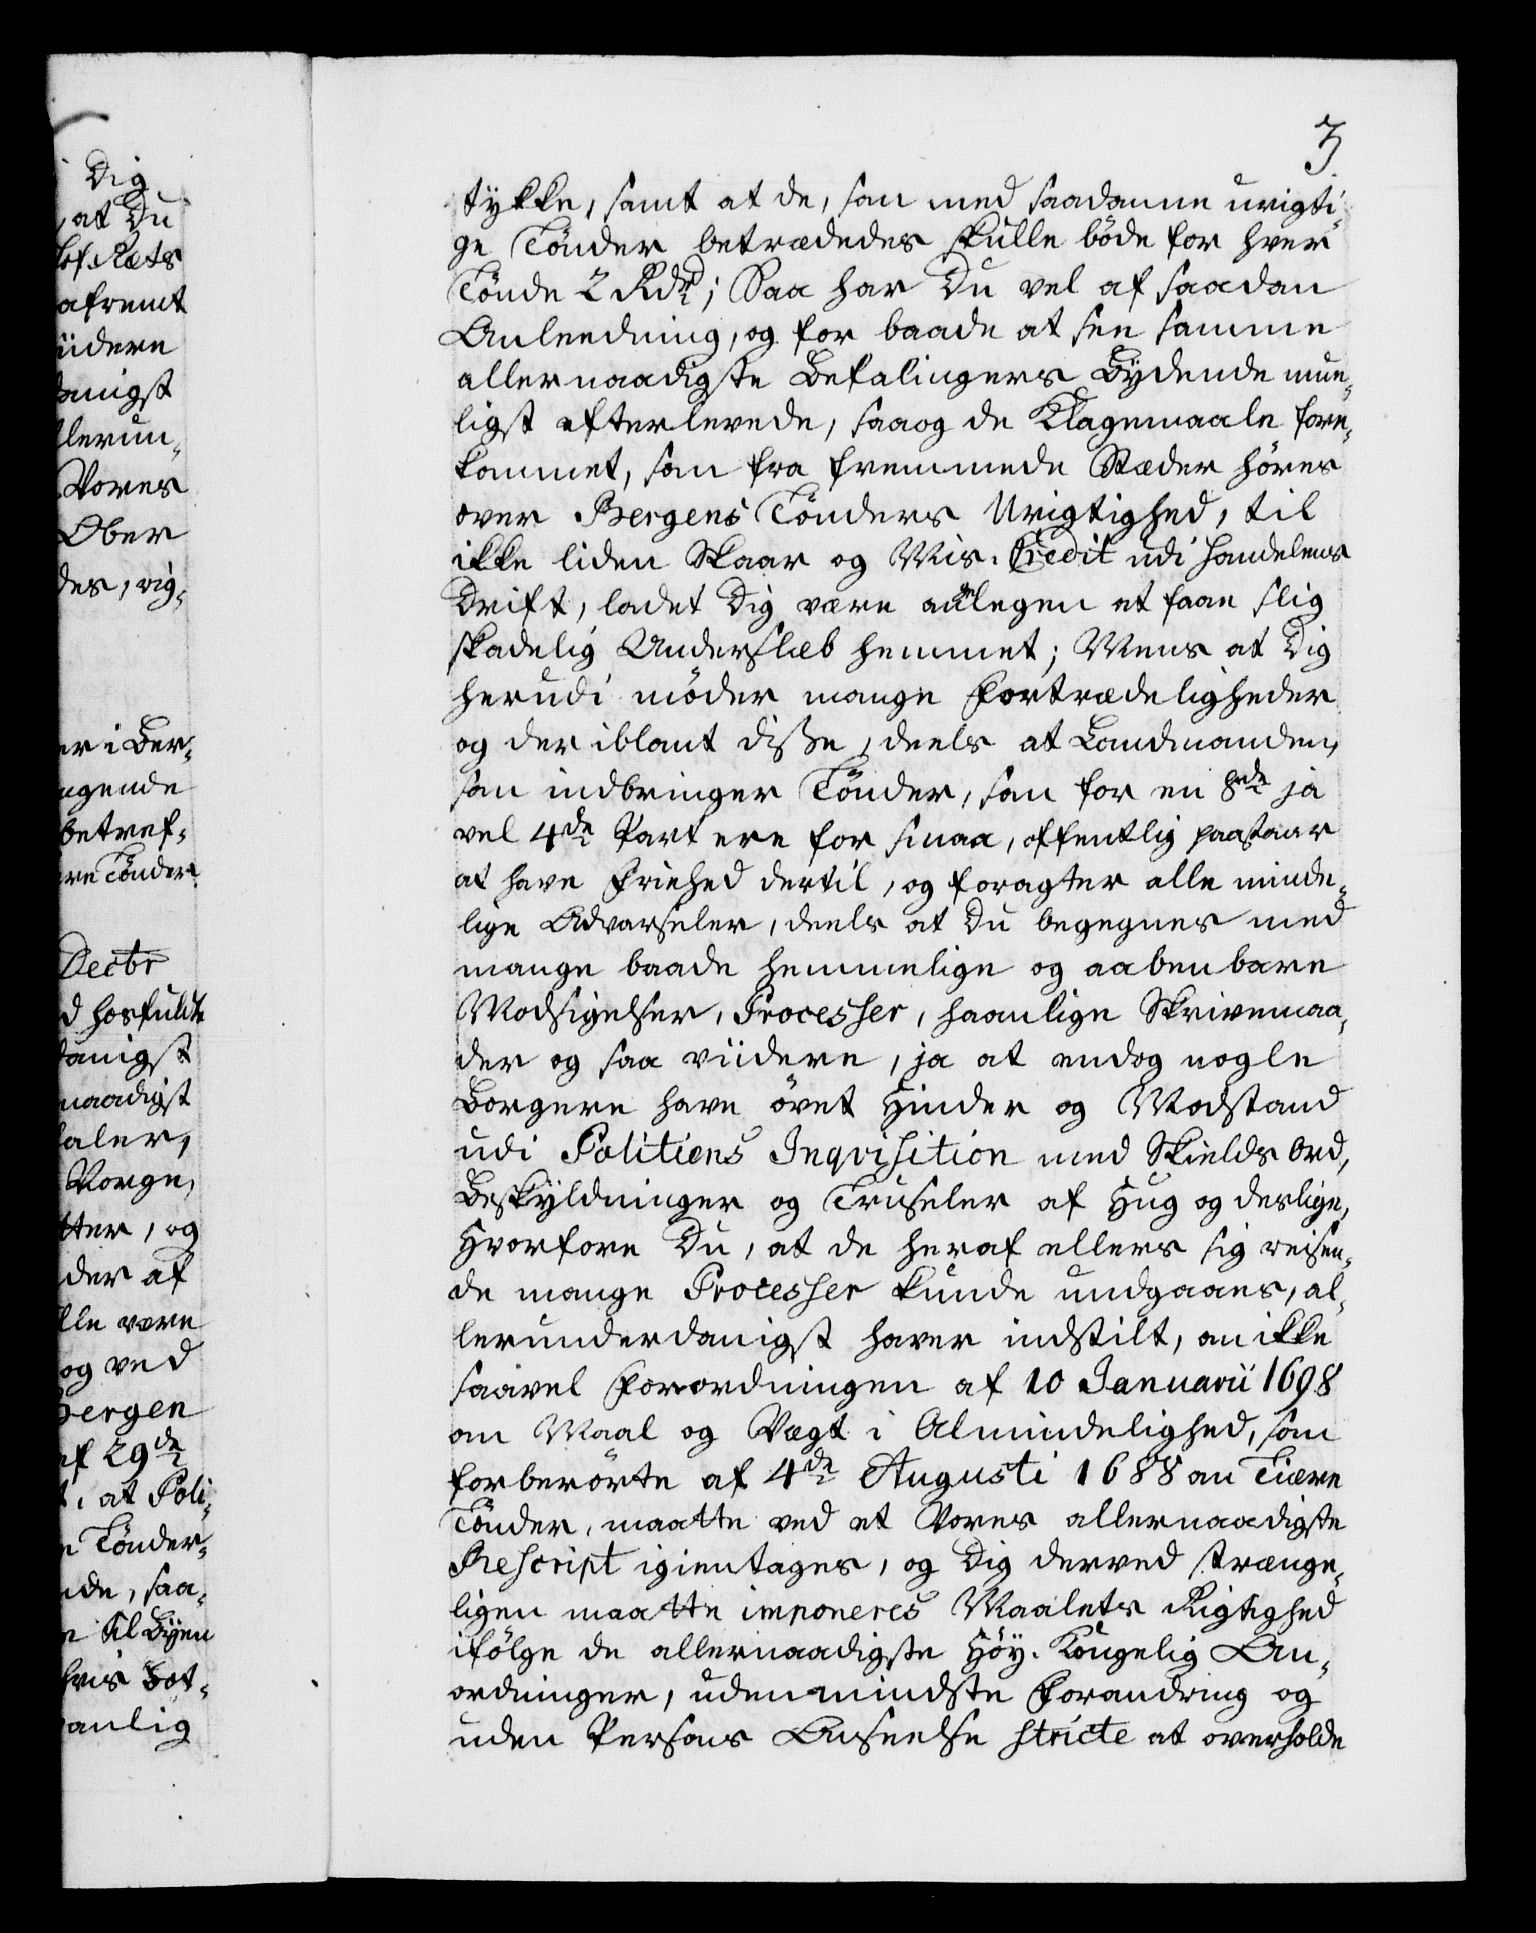 Dig
, at Du
Hof-Ræts
afremt
iidere
danigst
llerun-
Vores
Ober
des, rig-
er i Ber-
agende
betref-
ere Tönder
Dectr
d hosfuldte
danigst
naadigst
aler,
Norge,
tter, og
der af
lle være
og ved
Bergen
af 29de
t, at Poli-
e Tönder-
nde, saa-
e til Byen
hvis Bot-
anlig
3
tykke, samt at de, som med saadanne urigti-
ge Tönder betrædedes skulle böde for hver
Tönde 2 Rdr; Saa har Du vel af saadan
Anleedning, og for baade at see samme
allernaadigste Befalingers Bydende mue-
ligst efterlevede, saa og de Klagemaale fore-
kommet, som fra fremmede Stæder höres
over Bergens Tönders Urigtighed, til
ikke liden Skaar og Mis-Credit udi Handelens
Drift, ladet Dig være anlegen at faae slig
skadelig Underslæb hemmet; Mens at Dig
herudi möder mange Fortrædeligheder
og der iblant disse, deels at Landmanden,
som indbringer Tönder, som for en 8de ja
vel 4de Part ere for smaa, offentlig paastaar
at have Friehed dertil, og foragter alle minde-
lige Advarseler, deels at Du begegnes med
mange baade hemmelige og aabenbare
Modsigelser, Processer, haanlige Skrivemaa-
der og saa viidere, ja at endog nogle
Borgere have övet Hinder og Modstand
udi Politiens Inqvisition med Skields Ord,
Beskyldninger og Truseler af Hug og deslige,
Hvorfore Du, at de heraf ellers sig reisen-
de mange Processer kunde undgaaes, al-
lerunderdanigst haver indstilt, om ikke
saavel Forordningen af 10 Januarii 1698
om Maal og Vægt i Almindelighed, som
forberörte af 4de Augusti 1688 om Tiære
Tönder, maatte ved et Vores allernaadigste
Rescript igientages, og Dig derved strænge-
ligen maatte imponeres Maalets Rigtighed
ifölge de allernaadigste Höy-Kongelig An-
ordninger, uden mindste Forandring og
uden Persons Anseelse stricte at overholde